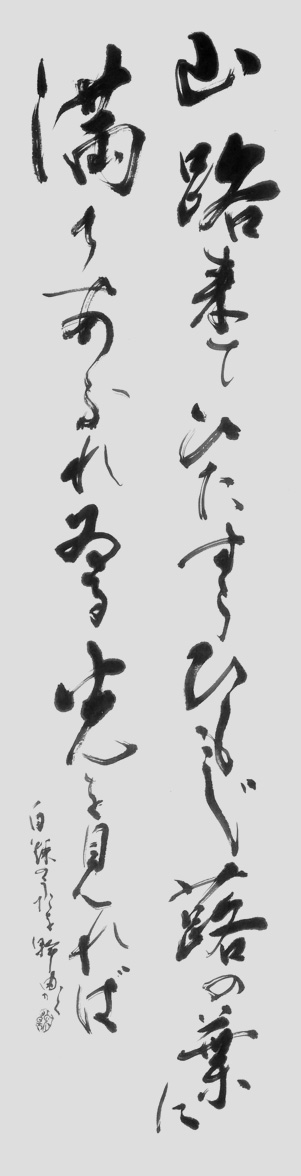 山路来てひたすらひもじ蕗の葉に
満ちあふれゐる光を見れば
白秋